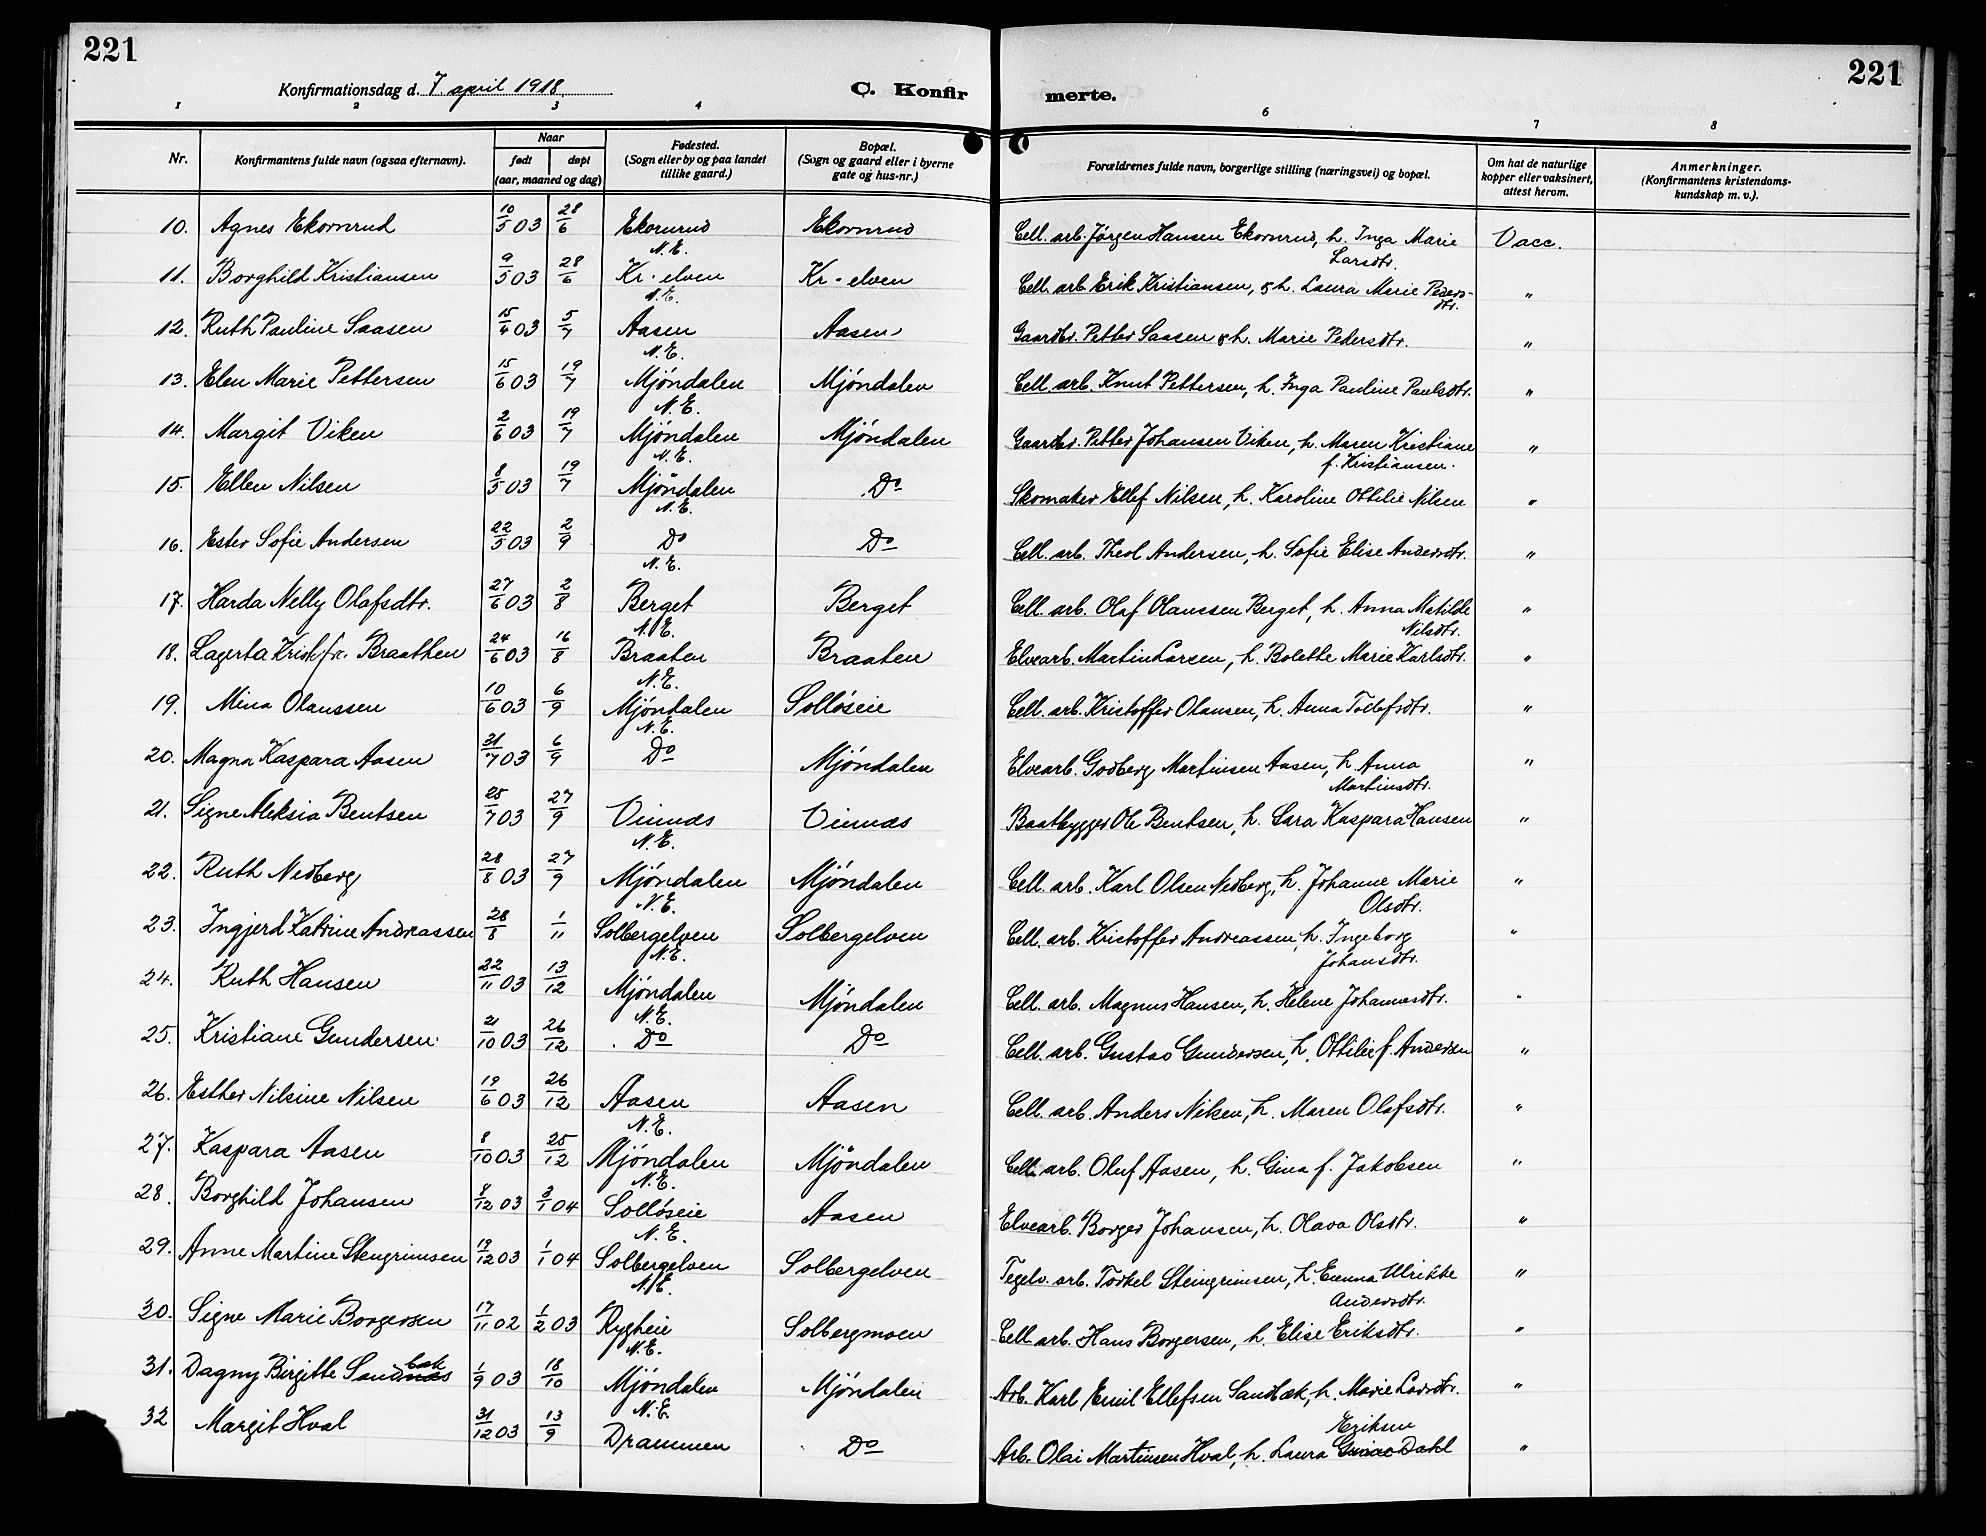 221
221
Konfirmationsdag d. 7 april 1918.
C. Konfir
merte.
1 2 3 4 6 7 8
Nr.
Konfirmantens fulde navn (ogsaa efternavn).
Naar
født døpt
(aar, maaned og dag)
Fødested.
(Sogn eller by og paa landet
tillike gaard.)
Bopæl.
(Sogn og gaard eller i byerne
gate og hus-nr.)
Forældrenes fulde navn, borgerlige stilling (næringsvei) og bopæl.
Om hat de naturlige
kopper eller vaksinert,
attest herom.
Anmerkninger.
(Konfirmantens kristendoms-
kundskap m. v.).
10. Agnes Ekornrud 10/5 03 28/6 Ekornrud Ekornrud Cell. arb. Jörgen Hansen Ekornrud, h. Inga Marie Vacc.
N.E. Larsdtr.
11. Borghild Kristiansen 9/5 03 28/6 Kr-elven Kr-elven Cell. arb. Erik Kristiansen, & h. Laura Marie Peders- "
N.E. dtr.
12. Ruth Pauline Saasen 15/4 03 5/7 Aasen Aasen Gaardbr. Petter Saasen & h. Marie Pedersdtr. "
N.E.
13. Elen Marie Pettersen 15/6 03 19/7 Mjöndalen Mjöndalen Cell. arb. Knut Pettersen, h. Inga Pauline Paulsdtr. "
N.E.
14. Margit Viken 2/6 03 19/7 Mjöndalen Mjöndalen Gaardbr. Petter Johansen Viken, h. Maren Kristiane "
N.E. f. Kristiansen.
15. Ellen Nilsen 8/5 03 19/7 Mjöndalen Do Skomaker Ellef Nilsen, h. Karoline Ottilie Nilsen "
N.E.
16. Ester Sofie Andersen 22/5 03 2/9 Do Do Cell. arb. Theol Andersen, h. Sofie Elise Andersdtr. "
N.E.
17. Harda Nelly Olafsdtr. 27/6 03 2/8 Berget Berget Cell. arb. Olaf Olanssen Berget, h. Anna Matilde "
N.E. Nilsdtr.
18. Lagerta Kristfr. Braathen 24/6 03 16/8 Braaten Braaten Elvearb. Martin Larsen, h. Bolette Marie Karlsdtr. "
N.E.
19. Mina Olanssen 10/6 03 6/9 Mjöndalen Solløseie Cell. arb. Kristoffer Olansen, h. Anna Tollefsdtr. "
N.E.
20. Magna Kaspara Aasen 31/7 03 6/9 Do Mjöndalen Elvearb. Godberg Martinsen Aasen, h. Anna "
Martinsdtr.
21. Signe Aleksia Bentsen 25/7 03 27/9 Vinnæs Vinnæs Baatbygger Ole Bentsen, h. Sara Kaspara Hansen "
N.E.
22. Ruth Nedberg 28/8 03 27/9 Mjöndalen Mjöndalen Cell. arb. Karl Olsen Nedberg, h. Johanne Marie "
N.E. Olsdtr.
23. Ingjerd Katrine Andreassen 28/8 1/11 Solbergelven Solbergelven Cell. arb. Kristoffer Andreassen, h. Ingeborg "
N.E. Johansdtr.
24. Ruth Hansen 22/11 03 13/12 Mjöndalen Mjöndalen Cell. arb. Magnus Hansen, h. Helene Johannesdtr. "
N.E.
25. Kristiane Gundersen 21/10 03 26/12 Do Do Cell. arb. Gustav Gundersen, h. Ottilie f. Andersen "
26. Esther Nilsine Nilsen 19/6 03 26/12 Aasen Aasen Cell. arb. Anders Nilsen, h. Maren Olafsdtr. "
N.E.
27. Kaspara Aasen 8/10 03 25/12 Mjöndalen Mjöndalen Cell. arb. Oluf Aasen, h. Gina f. Jakobsen "
N.E.
28. Borghild Johansen 8/12 03 3/1 04 Solløseie Aasen Elvearb. Borger Johansen, h. Olava Olsdtr. "
N.E.
29. Anne Martine Stengrimsen 19/12 03 1/1 04 Solbergelven Solbergelven Tegelv. arb. Torkel Steingrimsen, h. Emma Ulrikke "
N.E. Andersdtr.
30. Signe Marie Borgersen 17/11 02 1/2 03 Rygheie Solbergmoen Cell. arb. Hans Borgersen, h. Elise Eriksdtr. "
N.E.
31. Dagny Birgitte Sandnæs bæk 1/9 03 18/10 Mjöndalen Mjöndalen Arb. Karl Emil Ellefsen Sandbæk, h. Marie Larsdtr. "
N.E. Eriksen
32 Margit Hval 31/12 03 13/9 Drammen Do Arb. Olai Martinsen Hval, h. Laura Dahl "